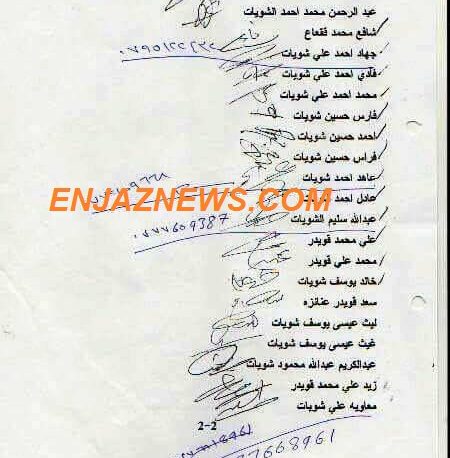 عبد الرحمن محمد احمد الشويات
شافع محمد قفعاع
جهاد احمد علي شويات
فادي احمد علي شويات
محمد احمد علي شويات
فارس حسين شويات
احمد حسين شويات
فراس حسين شويات
عاهد احمد شويات
ENJAZNEWS.COM
عادل احمد
عبدالله سليم الشويات
٠٧٧٧609387
علي محمد قويدر
محمد علي قويدر
خالد يوسف شويات
سعد قويدر عنانزه
ليث عيسى يوسف شويات
غيث عيسى يوسف شويات
عبدالكريم عبدالله محمود شويات
زيد علي محمد قويدر
معاويه علي شويات
2-2